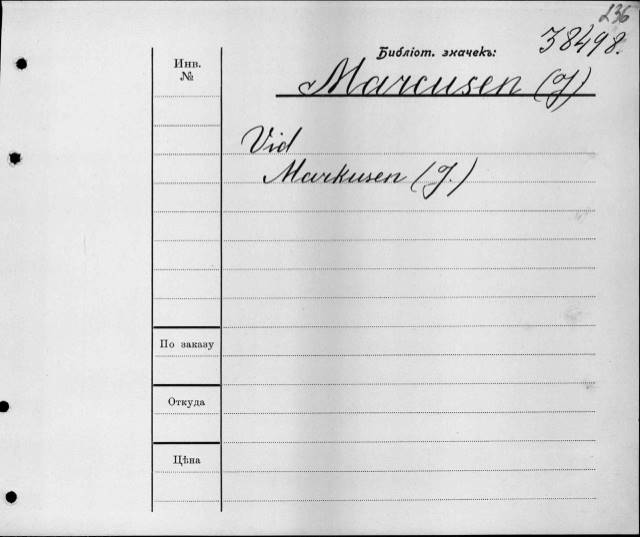 236
38498.
Библіот. значекъ:
Инв.
№
Marcusen (J)
Vid
Markusen (J.)
По заказу
Откуда
Цѣна